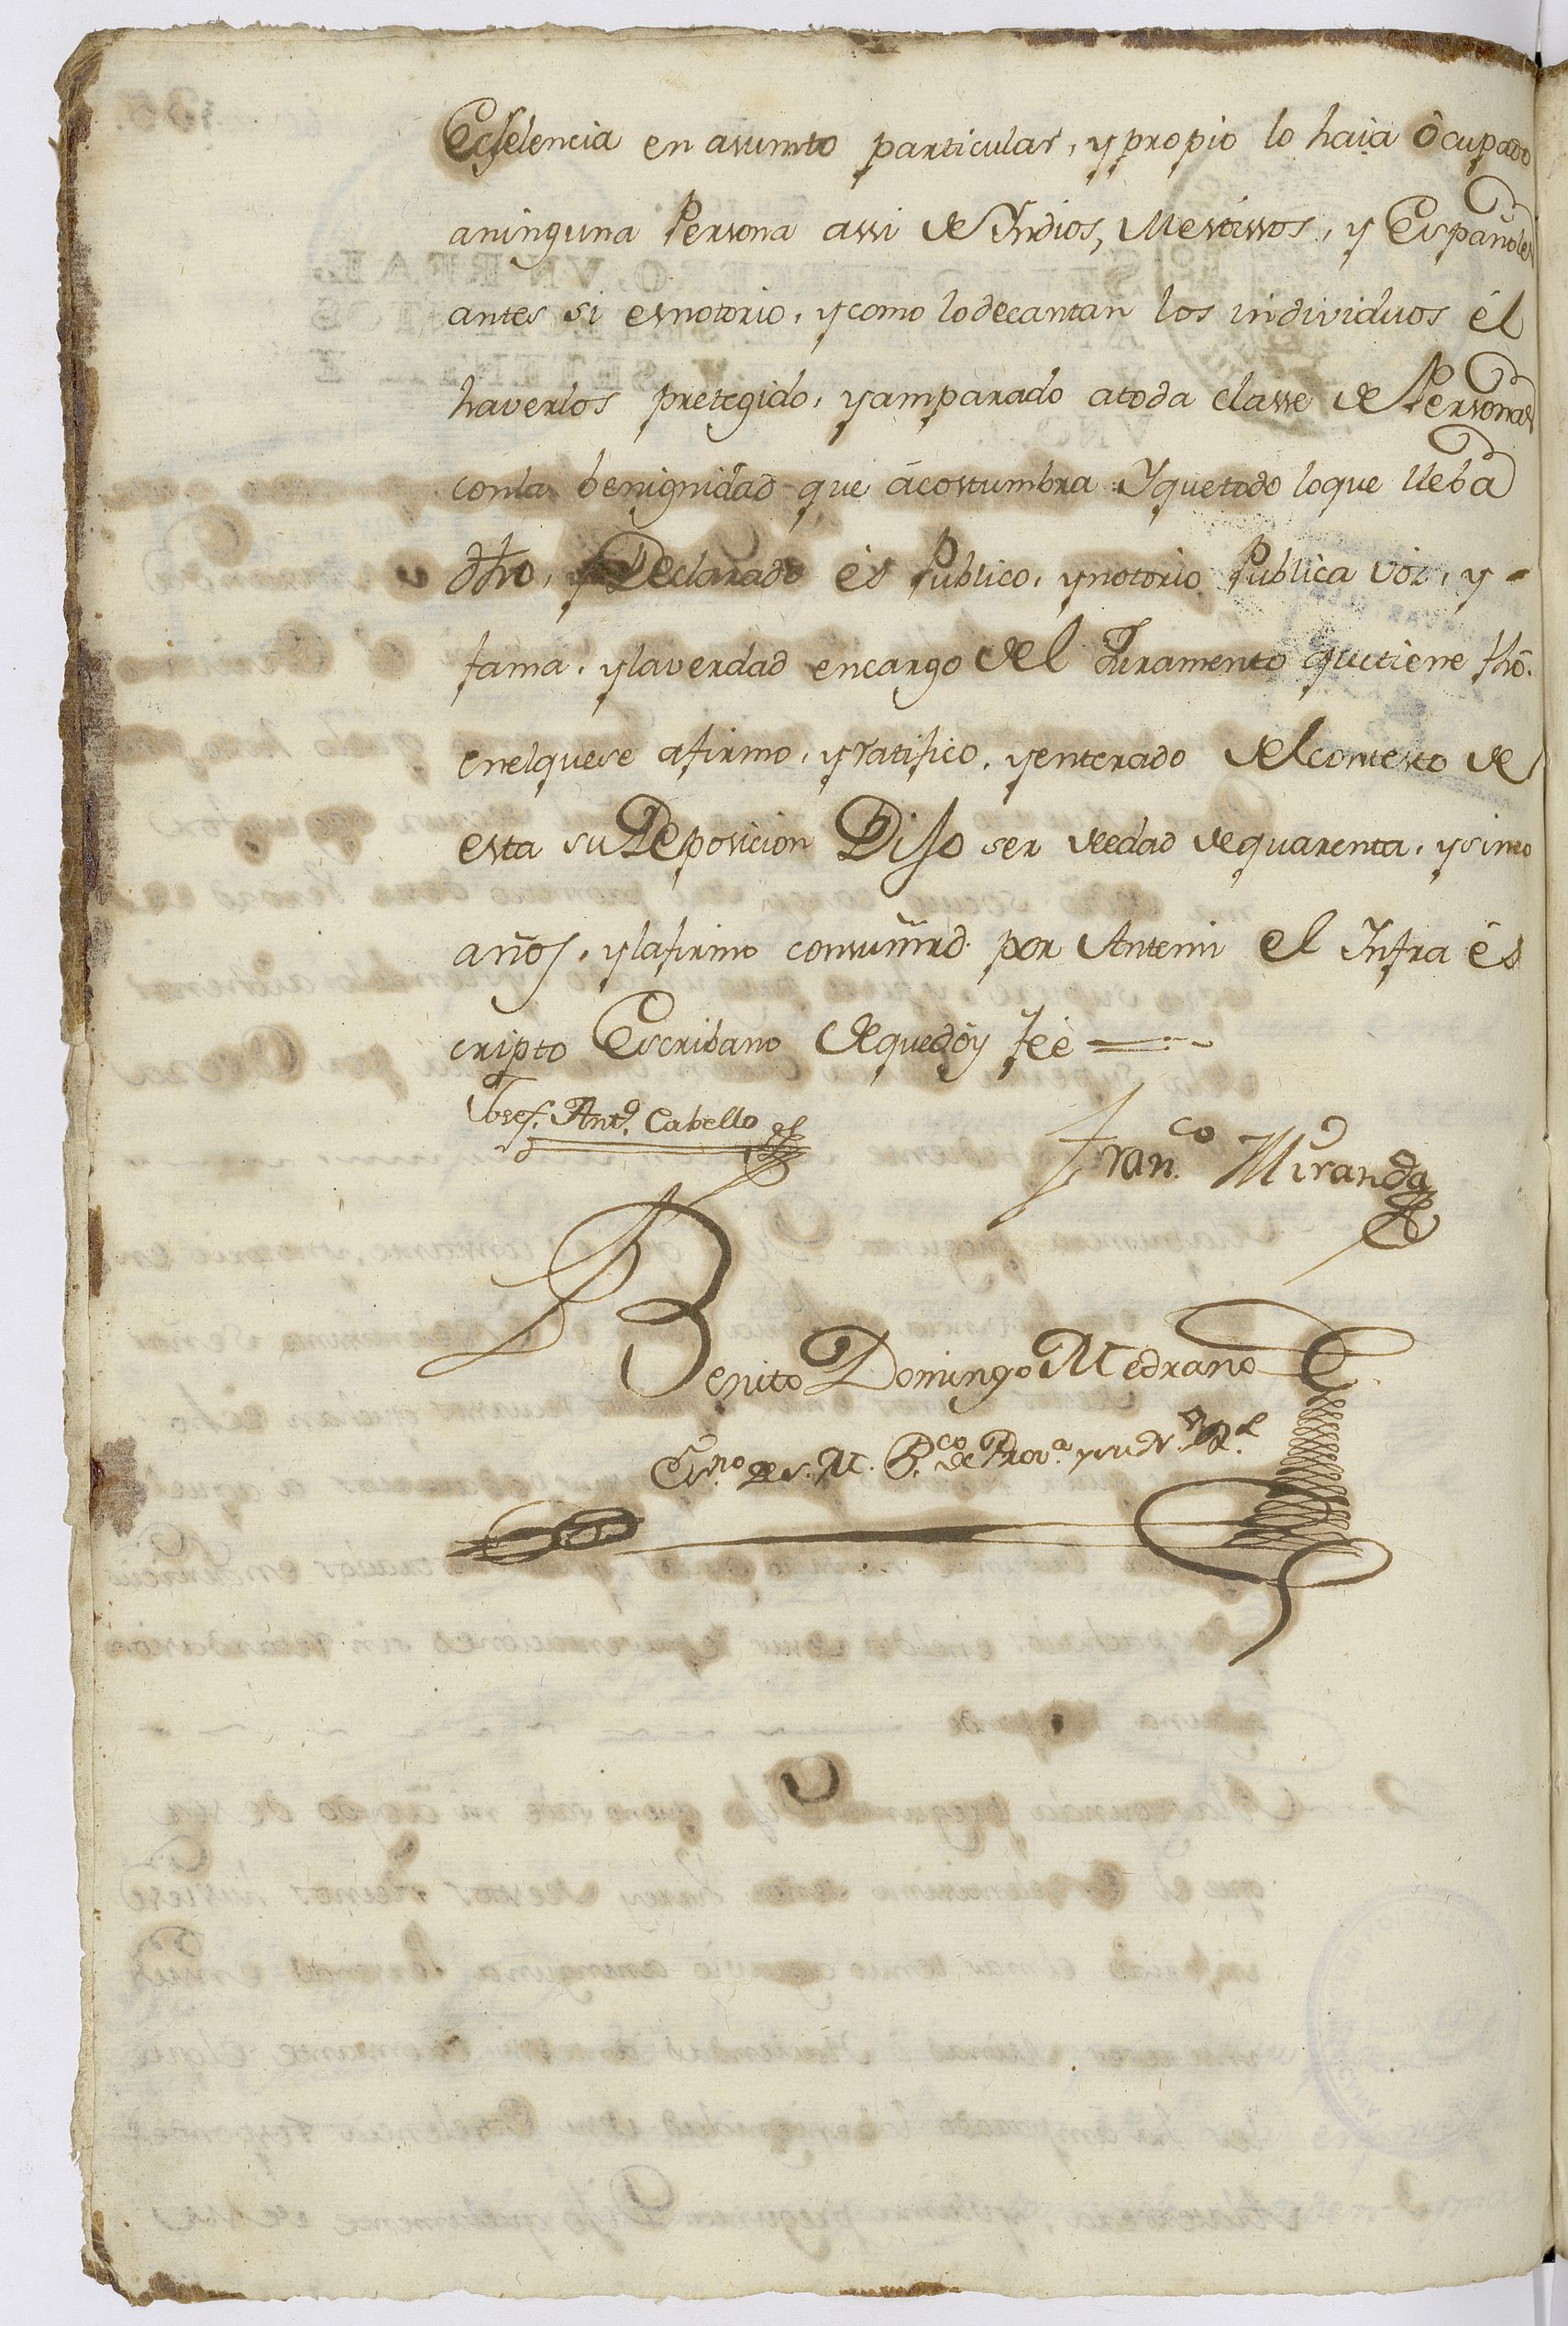 Ecselencia en asumto particular, y propio lo haia ocupado
aninguna Persona assi de Yndios, Mestissos, y Españoles
antes si esnotorio, y como lodecantan los individuos él
haverlos pretegido, y amparado atoda classe de Personas
conla benignidad que acostumbra Yquetodo loque lleba
dho, y Declarado és Publico, y notorio Publica voz, y
fama, y laverdad encargo del Juramento quetiene fho.
enelquese afirmo, y ratifico, y enterado delcontexto de
esta su Deposicion Dijo ser deedad dequarenta, y sinco
años, y lafirmo consumrd. por Antemi el Infra és
cripto Escribano dequedoy feé
Josef. Anto. Cabello
Fran.co Miranda
Benito Domingo Medrano
Es.no de S. M. P.co de Prov.a y su